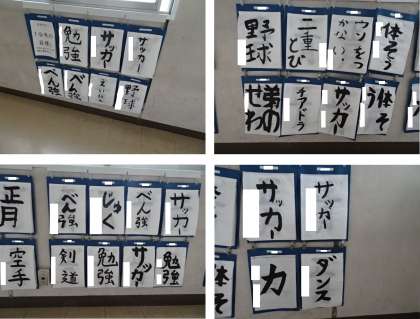 勉強
サッカー
サッカー
べん強
べん強
えいご
野球
野球
二重とび
ウソをつかない!
体そう
弟のせわ
チアドラ
サッカー
体そう
正月
べん強
じゅく
べん強
サッカー
空手
剣道
勉強
サッカー
勉強
サッカー
サッカー
カ
ダンス